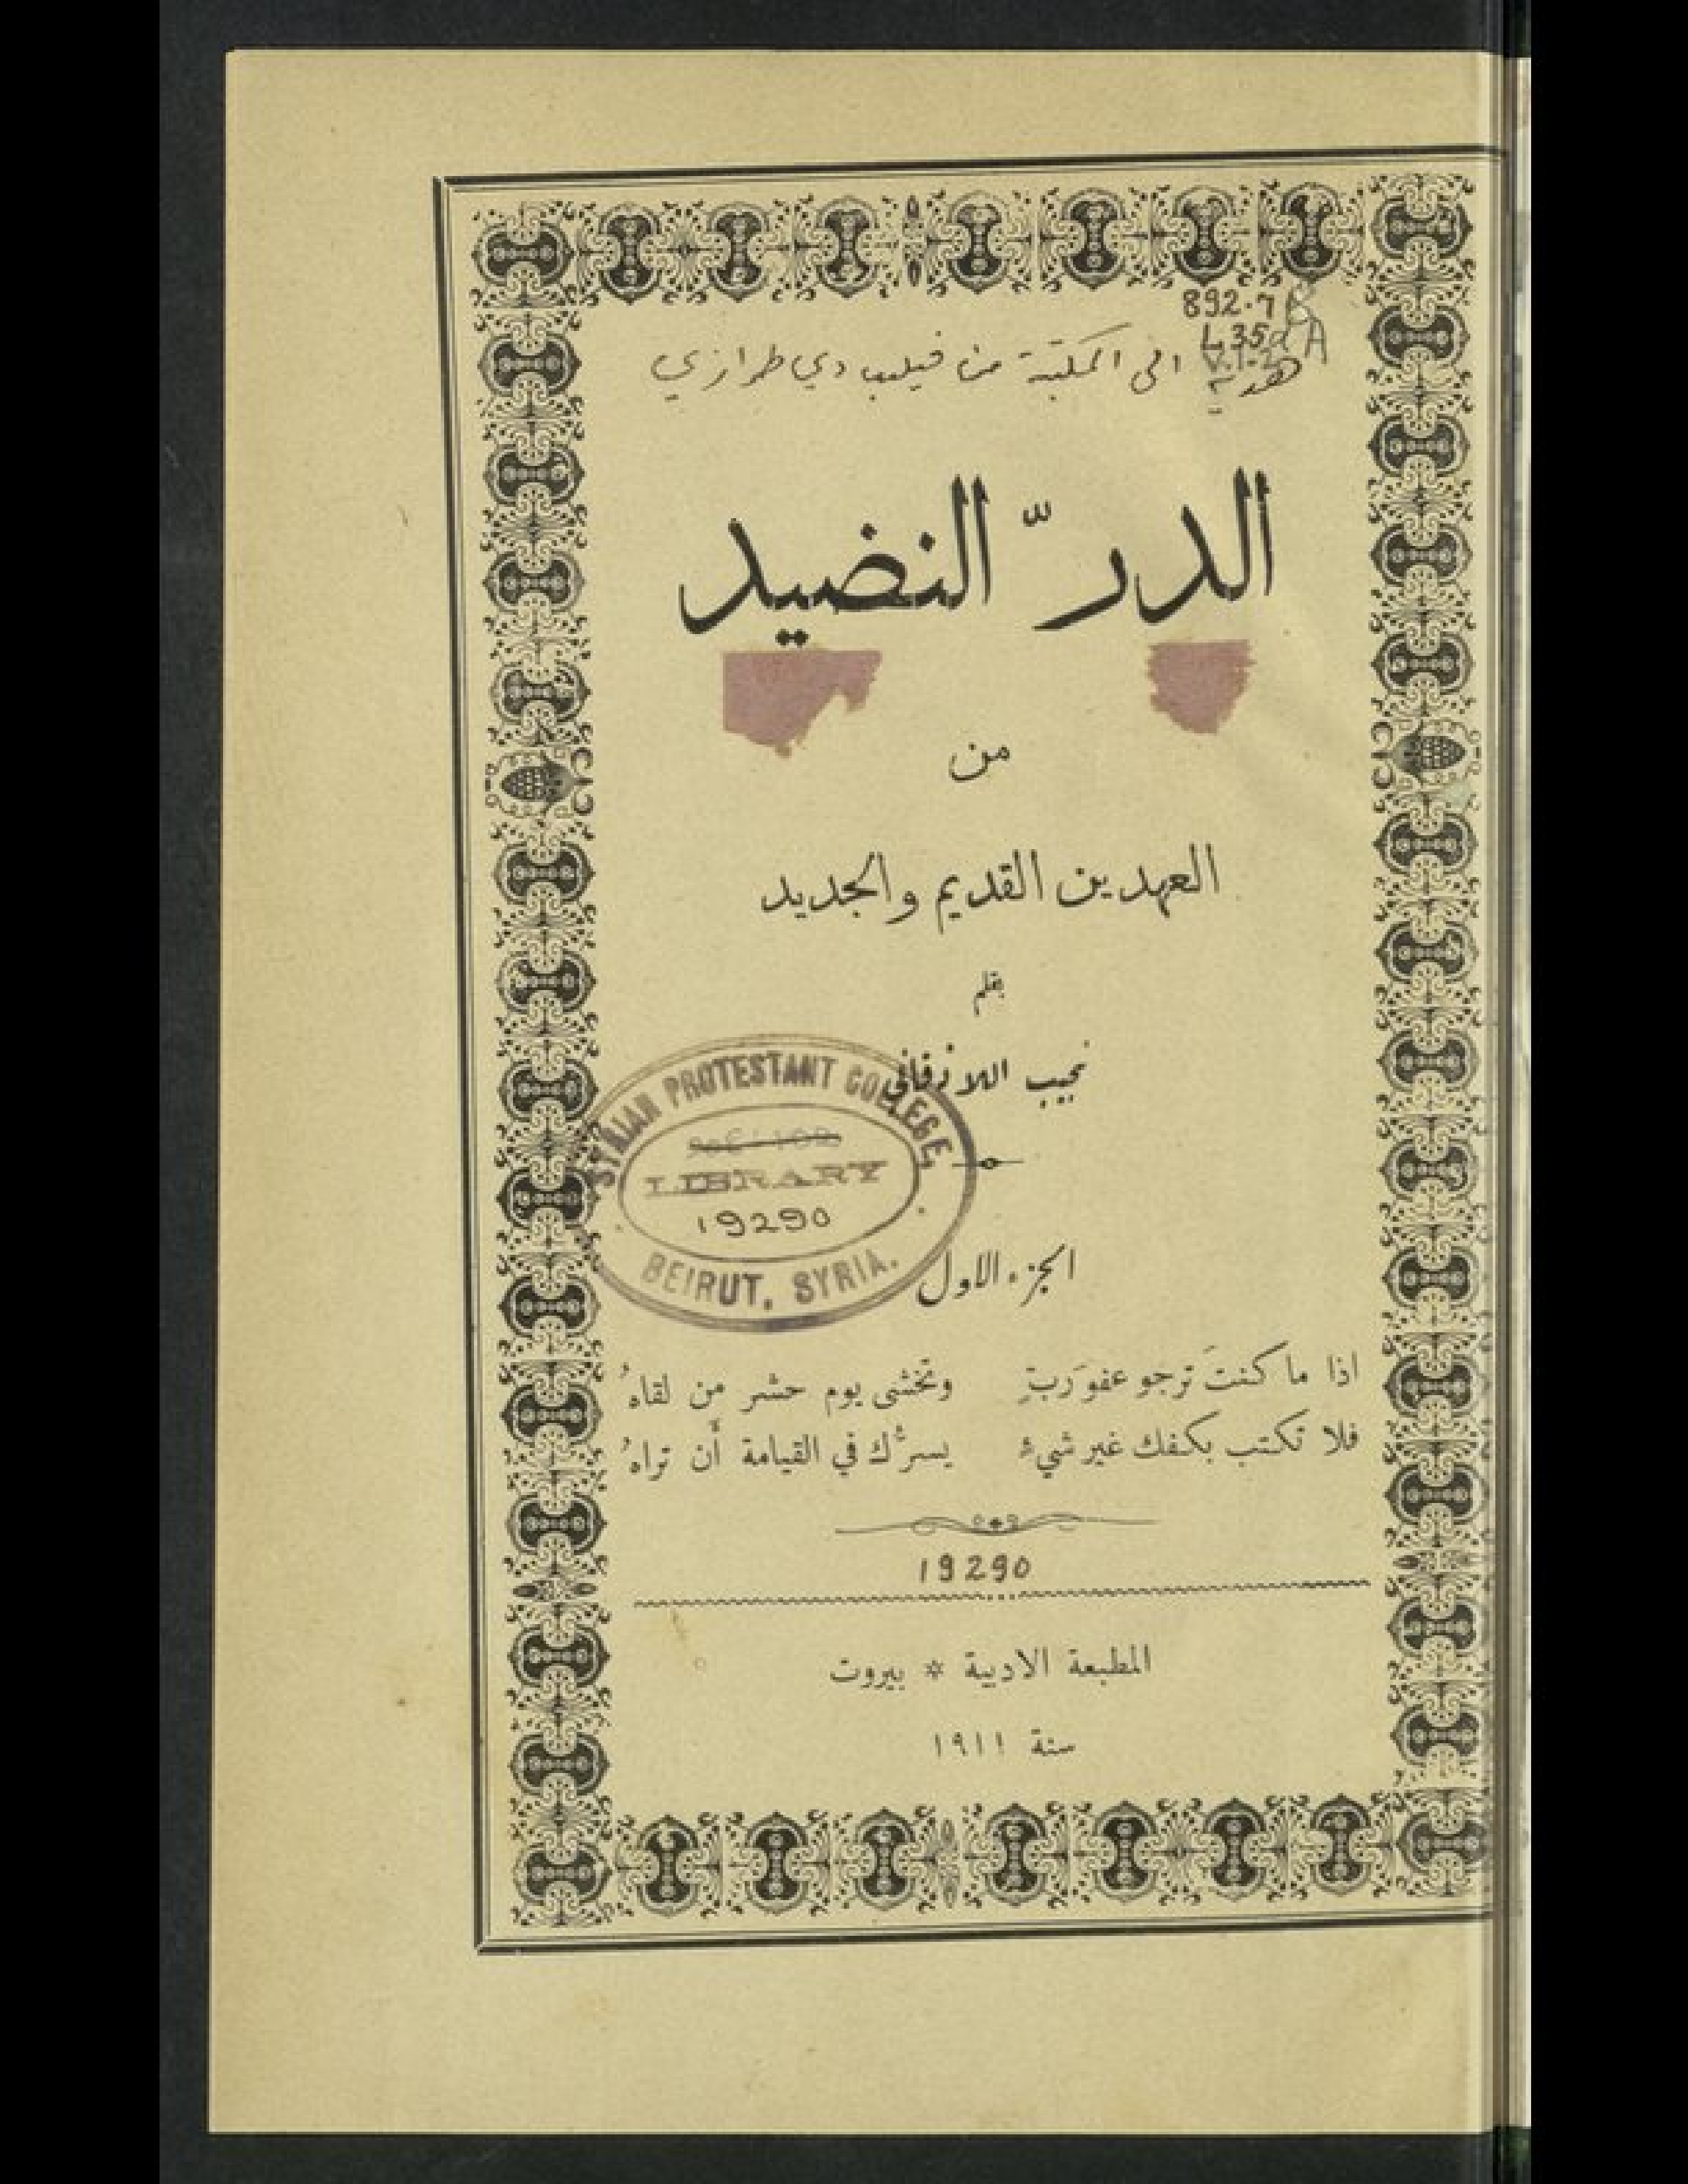 892.7
L35dA
V.1-2
هدية الى المكتبة من فيليب دي طرازي
الدرّ النضيد
من
العهدين القديم والجديد
بقلم
نجيب اللاذقاني
SYRIAN PROTESTANT COLLEGE
LIBRARY
19290
BEIRUT, SYRIA.
الجزء الاول
اذا ما كنتَ ترجو عفوَ رَبٍّ وتخشى يوم حشر من لقاهُ
فلا تكتب بكفك غير شيءٍ يسرُّك في القيامة أَن تراهُ
19290
المطبعة الادبية * بيروت
سنة ١٩١١